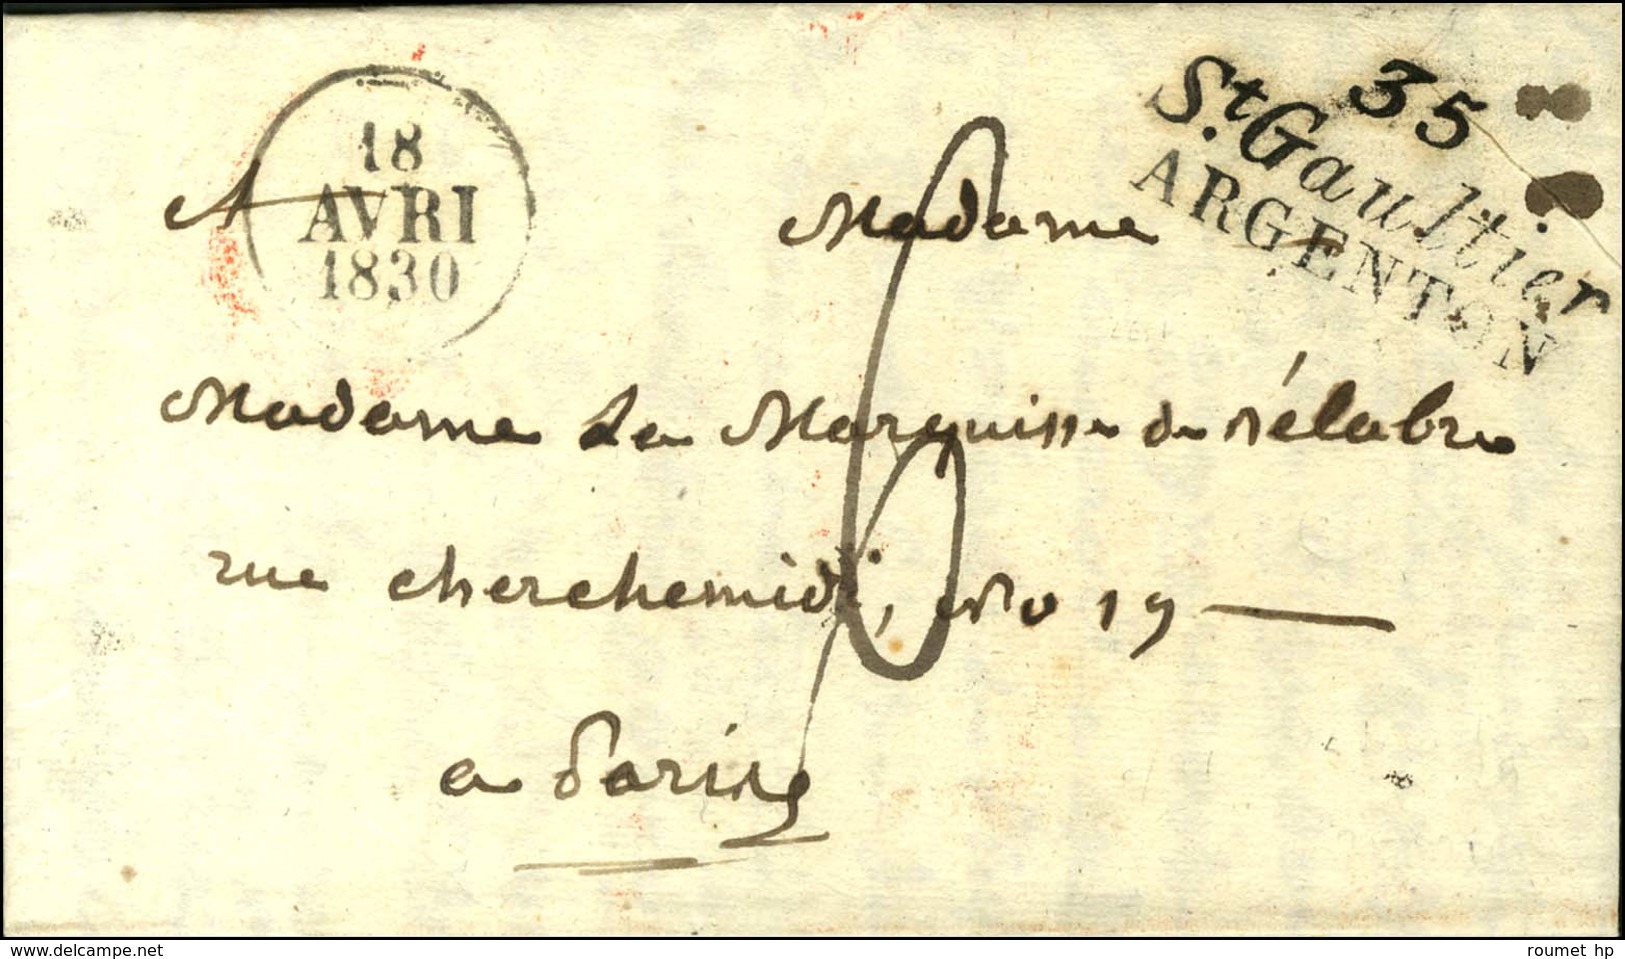 35
St. Gaultier
ARGENTON
18
AVRI
1830
A Madame
Madame La Marquise de Bélabre
rue cherchemidi, No 19
a Paris
6
delcampe.net
roumet hp